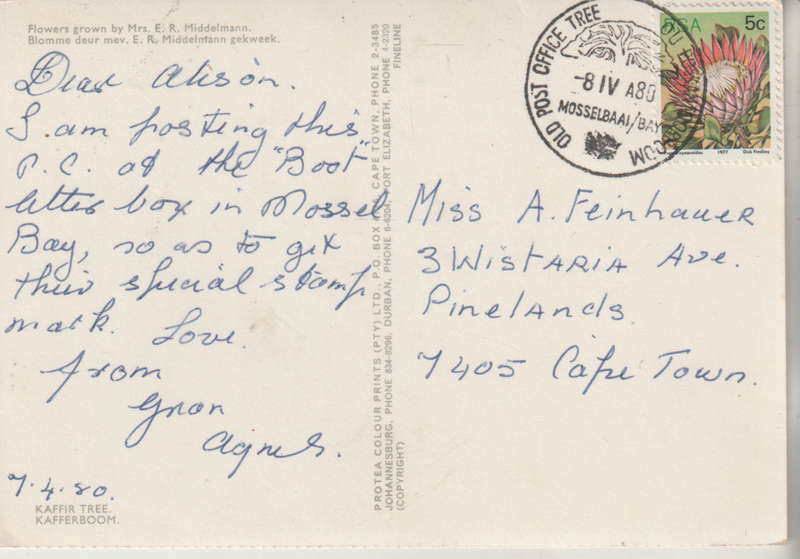 Flowers grown by Mrs. E. R. Middelmann.
Blomme deur mev. E. R. Middelmann gekweek.
Dear Alison.
I am posting this
P.C. at the "Boot"
letter box in Mossel
Bay, so as to get
their special stamp
mark. Love.
from
Gran
Agnes.
7.4.80.
KAFFIR TREE.
KAFFERBOOM.
PROTEA COLOUR PRINTS (PTY) LTD., P.O. BOX CAPE TOWN, PHONE 2-3485
JOHANNESBURG, PHONE 834-8296, DURBAN, PHONE PORT ELIZABETH, PHONE 4-2320
(COPYRIGHT) FINELINE
OLD POST OFFICE TREE
-8 IV A80
MOSSELBAAI/BAY
RSA 5c
1977
Miss A. Feinhauer
3 Wistaria Ave.
Pinelands.
7405 Cape Town.